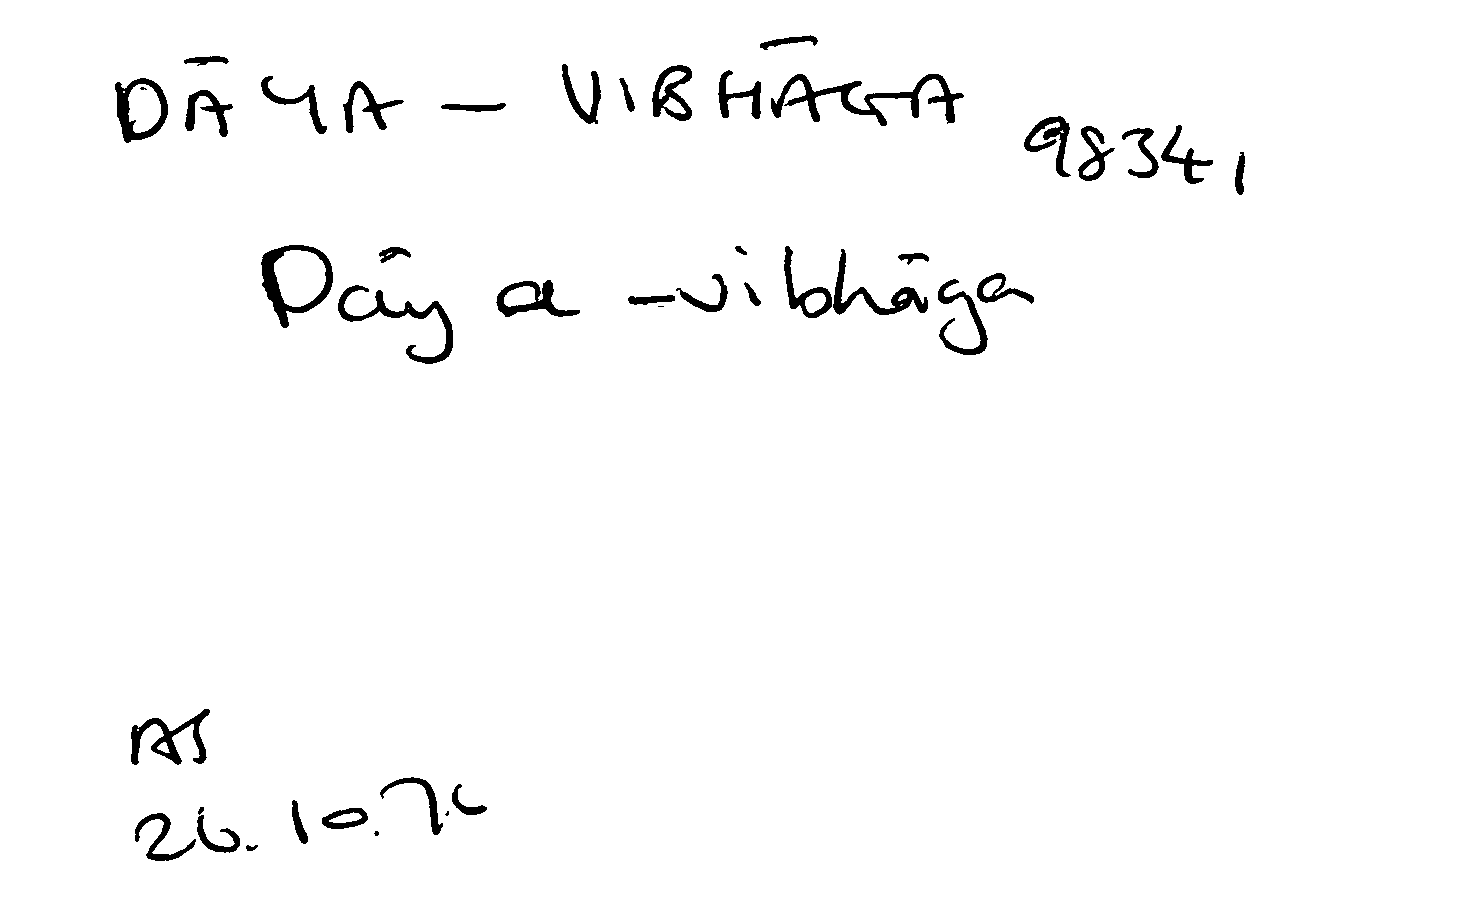 DĀYA - VIBHĀGA 98341
Dāya - vibhāga
AS
26.10.76